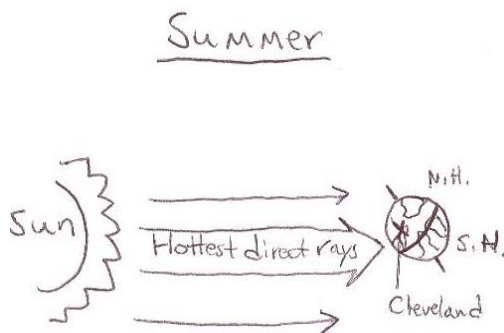 Summer
N.H.
Sun
Hottest direct rays
S.H.
Cleveland